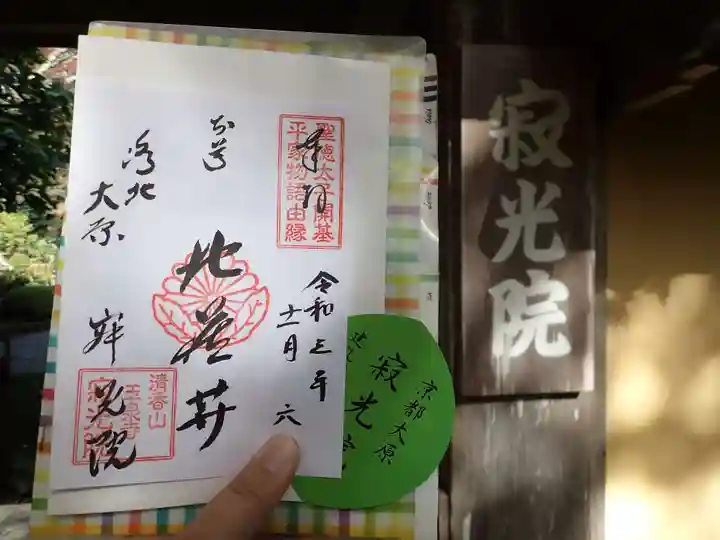 奉拝
聖徳太子開基
平家物語由縁
令和三年
十一月
六
地蔵菩
洛北
大原
寂光院
清香山
玉泉寺
寂光院
京都大原
寂光院
寂光院